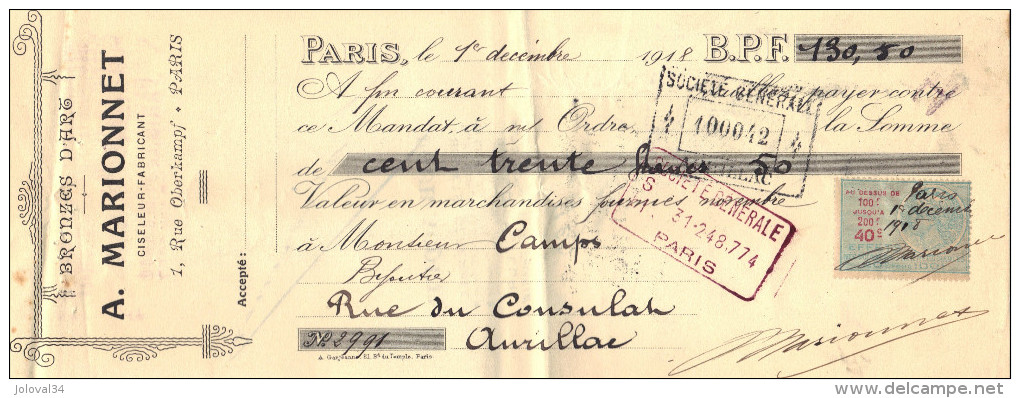 BRONZES D'ART
A. MARIONNET
CISELEUR-FABRICANT
1, Rue Oberkampf • PARIS
Accepté:
PARIS, le 1er décembre 1918 B.P.F. 130,50
A fin courant payer contre
ce Mandat, à m/ Ordre, la Somme
de cent trente francs 50
Valeur en marchandises fournies novembre
à Monsieur Camps
Bijoutier
Rue du Consulat
No 2991 Aurillac
A. Garçonne, 81, Bd du Temple, Paris
SOCIÉTÉ GÉNÉRALE
4 100042 4
SOCIÉTÉ GÉNÉRALE
31-248.774
PARIS
AU DESSUS DE
100F
JUSQU'A
200F
40c
Paris
1er décembre
1918
Marionnet
joloval34
delcampe.net